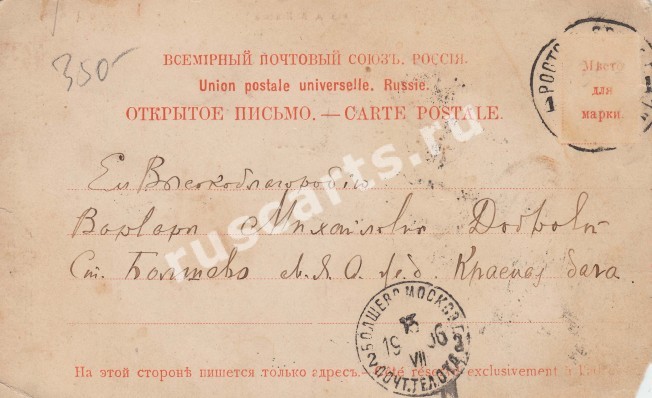 350-
ВСЕМІРНЫЙ ПОЧТОВЫЙ СОЮЗЪ. РОССІЯ.
Union postale universelle. Russie.
ОТКРЫТОЕ ПИСЬМО. — CARTE POSTALE.
Мѣсто
для
марки.
РОСТО
Ея Высокоблагородію
Варвари Михайловнѣ
Ст. Болшево М. Я. О. ж. д. Красная дача
БОЛШЕВО МОСКОВ. Г.
15
19 06
VII
ПОЧТ. ТЕЛ. ОТД.
На этой сторонѣ пишется только адресъ. — Côté réservé exclusivement à l'
ruscarts.ru